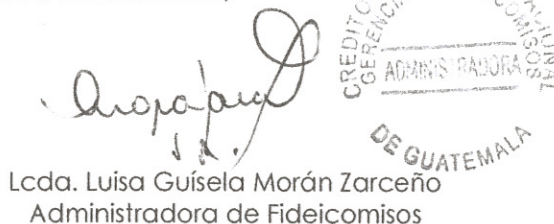 CREDITO
GERENCIA
ADMINISTRADORA
DE GUATEMALA
Lcda. Luisa Guísela Morán Zarceño
Administradora de Fideicomisos